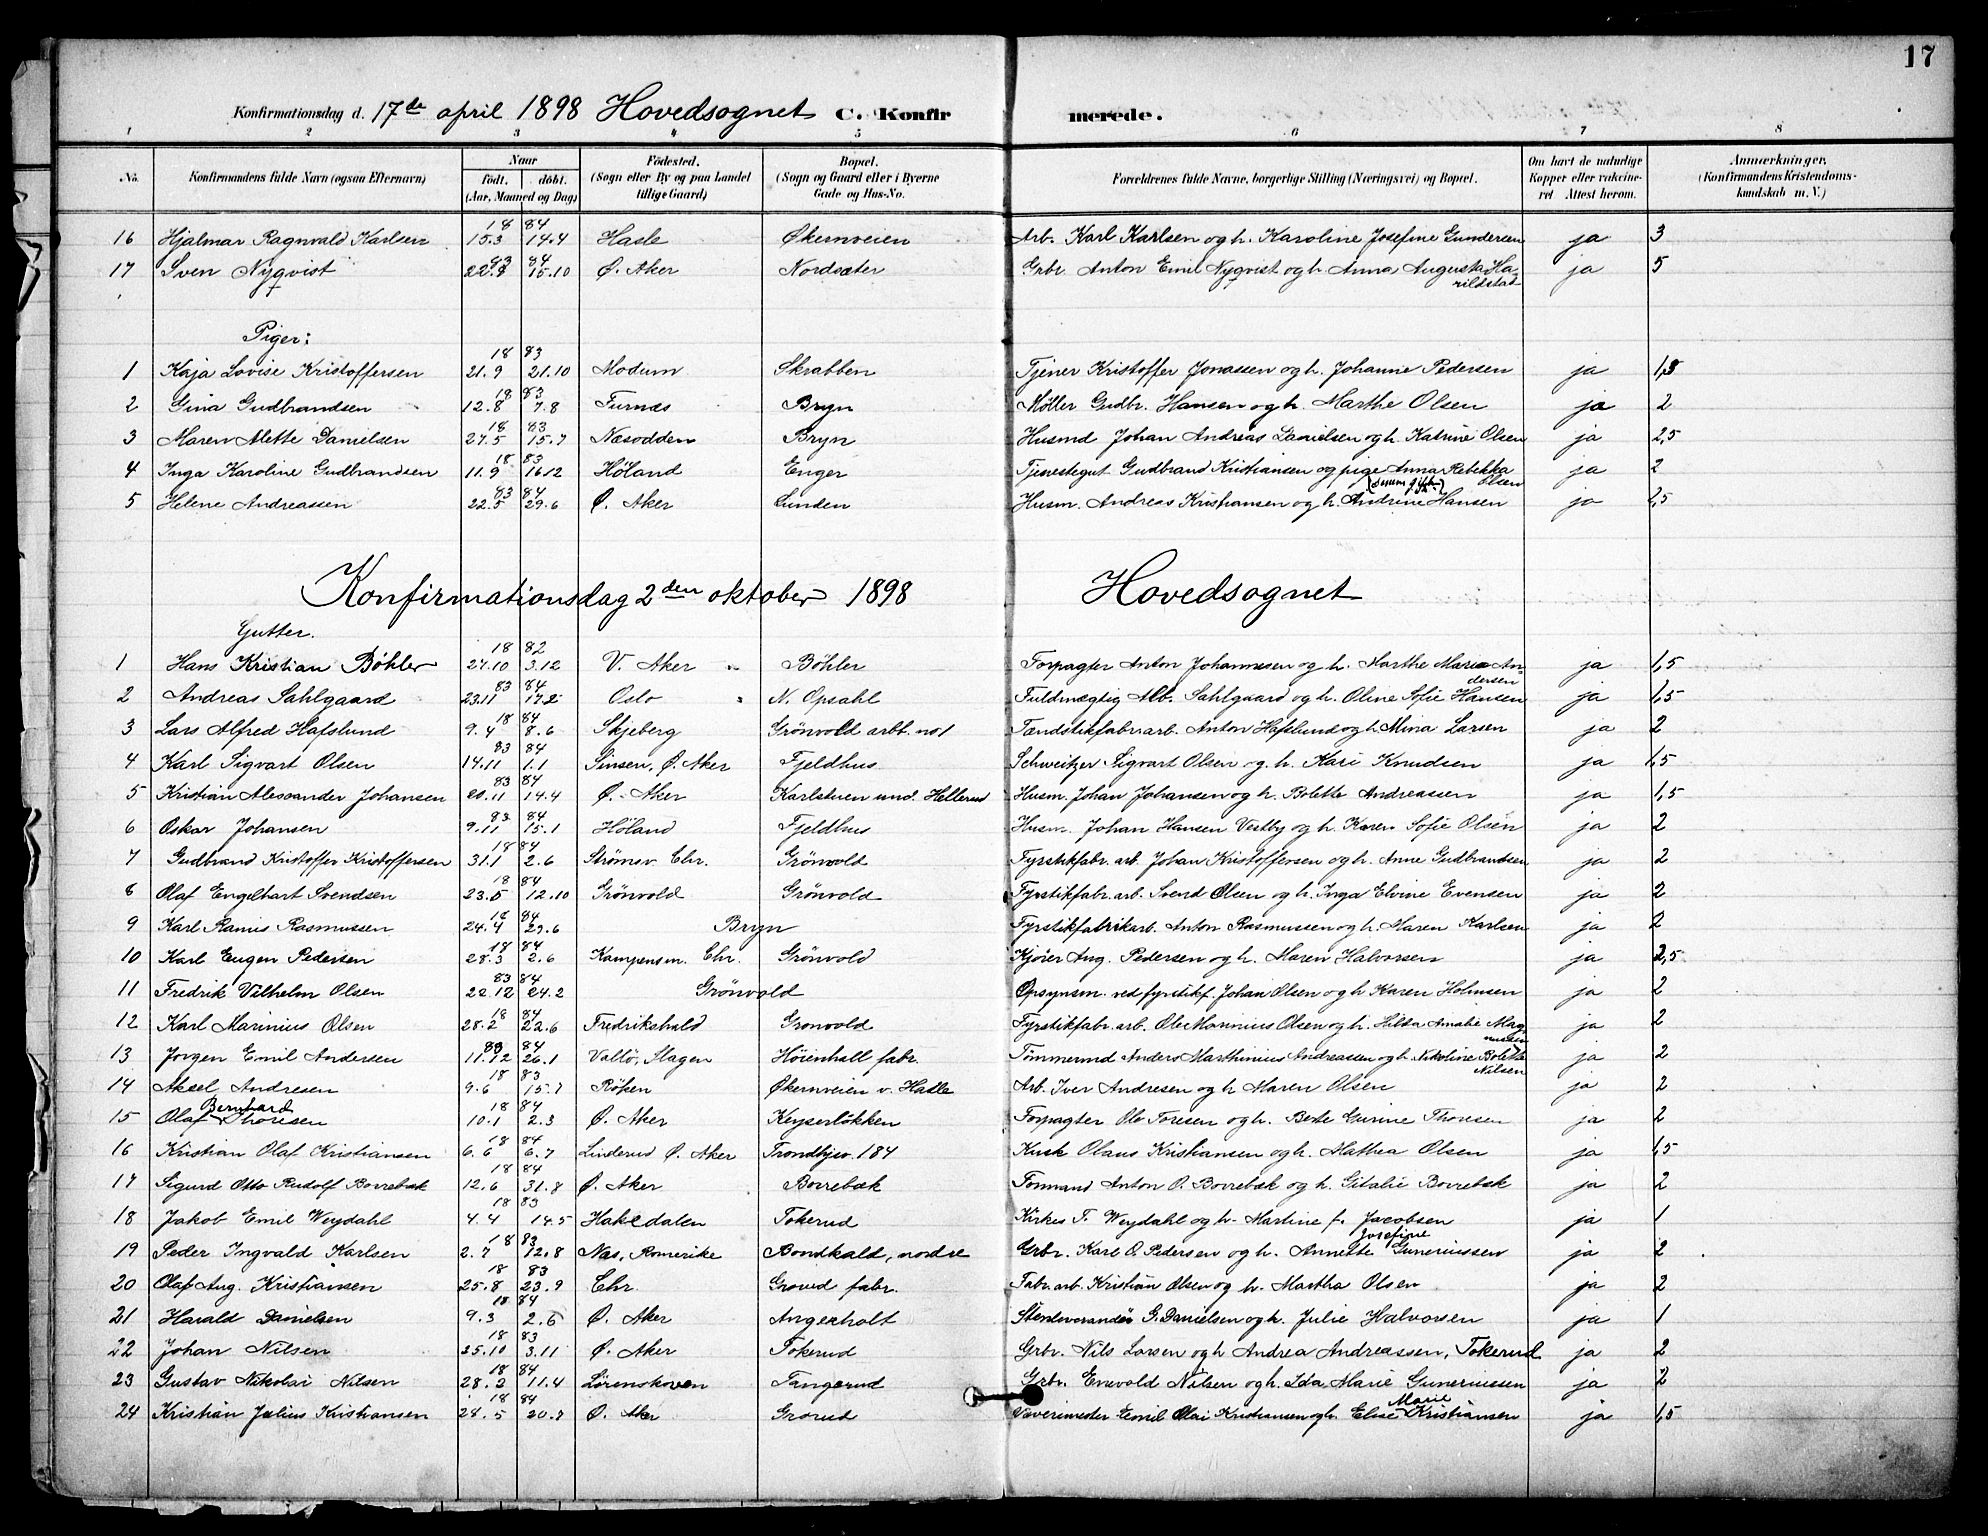 17
Konfirmationsdag d. 17de april 1898 Hovedsognet C. Konfirmerede.
1 2 3 4 5 6 7 8
No. Konfirmandens fulde Navn (ogsaa Efternavn) Naar født. døbt. (Aar, Maaned og Dag) Fødested. (Sogn eller By og paa Landet tillige Gaard) Bopæl. (Sogn og Gaard eller i Byerne Gade og Hus-No. Forældrenes fulde Navne, borgerlige Stilling (Næringsvei) og Bopæl. Om havt de naturlige Kopper eller vakcineret Attest herom. Anmærkninger, (Konfirmandens Kristendomskundskab m. V.)
16 Hjalmar Ragnvald Karlsen 18 84 15.3 14.4 Hasle Økernveien Arb. Karl Karlsen og h. Karoline Josefine Gundersen ja 3
17 Sven Nyqvist 83 84 22.9 15.10 Ø. Aker Nordsæter Grbr. Anton Emil Nyqvist og h. Anna Augusta Harildstad ja 5
Piger:
1 Kaja Lovise Kristoffersen 18 83 21.9 21.10 Modum Skrabben Tjener Kristoffer Jonassen og h. Johanne Pedersen ja 1,5
2 Gina Gudbrandsen 18 83 12.8 7.8 Furnæs Bryn Møller Gudbr. Hansen og h. Marthe Olsen ja 2
3 Maren Mette Danielsen 18 83 27.5 15.7 Næsodden Bryn Husmd Johan Andreas Danielsen og h. Katrine Olsen ja 2,5
4 Inga Karoline Gudbrandsen 18 83 11.9 16.12 Høland Enger Tjenestegut Gudbrand Kristiansen og pige Anna Rebekka Olsen ja 2
5 Helene Andreassen 83 84 22.5 29.6 Ø. Aker Lunden Husm. Andreas Kristiansen og h. Andrine Hansen ja 2,5
Konfirmationsdag 2den oktober 1898 Hovedsognet
Gutter.
1 Hans Kristian Bøhler 18 82 27.10 3.12 V. Aker Bøhler Forpagter Anton Johannesen og h. Marthe Marie Andersen ja 1,5
2 Andreas Sahlgaard 83 84 23.11 17.2 Oslo N. Opsahl Fuldmægtig Alb. Sahlgaard og h. Oline Sofie Hansen ja 1,5
3 Lars Alfred Hafslund 18 84 9.4 8.6 Skjeberg Grönvold arbt. no 1 Tændstikfabrarb. Anton Hafslund og h. Mina Larsen ja 2
4 Karl Sigvart Olsen 83 84 14.11 1.1 Sinsen, Ø. Aker Fjeldhus Schweitzer Sigvart Olsen og h. Kari Knudsen ja 1,5
5 Kristian Alexsander Johansen 83 84 20.11 14.4 Ø. Aker Karlstuen und. Hellerud Husm. Johan Johansen og h. Bolette Andreassen ja 1,5
6 Oskar Johansen 83 84 9.11 15.1 Höland Fjeldhus Husm. Johan Hansen Vestby og h. Karen Sofie Olsen ja 2
7 Gudbrand Kristoffer Kristoffersen 18 84 31.1 2.6 Strömsv. Chr. Grönvold Fyrstikfabr. arb. Johan Kristoffersen og h. Anne Gudbrandsen ja 2
8 Olaf Engelhart Svendsen 18 84 23.5 12.10 Grönvold Grönvold Fyrstikfabr. arb. Svend Olsen og h. Inga Elvine Evensen ja 2
9 Karl Ramus Rasmussen 18 84 24.4 29.6 Bryn Fyrstikfabrikarb. Anton Rasmussen og h. Maren Karlsen ja 2
10 Karl Eugen Pedersen 18 84 28.3 2.6 Kampensm. Chr. Grönvold Kjører Aug. Pedersen og h. Maren Halvorsen ja 2,5
11 Fredrik Vilhelm Olsen 83 84 22.12 24.2 Grönvold Opsynsm. ved fyrstikf. Johan Olsen og h. Karen Holmsen ja 2
12 Karl Marinius Olsen 18 84 28.2 22.6 Fredrikshald Gronvold Fyrstikfabr. arb. Ole Marinius Olsen og h. Hilda Amalie Magnussen ja 2
13 Jørgen Emil Andersen 83 84 11.12 26.1 Vallö, Slagen Höienhall fabr. Tömmermd Anders Marthinius Andreassen og h. Nikoline Bolette Nilsen ja 2
14 Aksel Andresen 18 83 9.6 15.7 Röken Økernveien v. Hasle Arb. Iver Andresen og h. Maren Olsen ja 2
15 Olaf Bernhard Thoresen 18 84 10.1 2.3 Ø. Aker Keyserlökken Forpagter Ole Toresen og h. Berte Gurine Thoresen ja 2
16 Kristian Olaf Kristiansen 18 84 6.6 6.7 Linderud Ø. Aker Trondhjsv. 184 Kusk Olaus Kristiansen og h. Mathea Olsen ja 1,5
17 Sigurd Otto Rudolf Borrebæk 18 84 12.6 31.8 Ø. Aker Borrebæk Formand Anton O. Borrebæk og h. Gitalie Borrebæk ja 2
18 Jakob Emil Weydahl 18 83 4.4 14.5 Hakedalen Tokerud Kirkes T. Weydahl og h. Martine f. Jacobsen ja 1
19 Peder Ingvald Karlsen 18 83 2.7 12.8 Næs, Romerike Bondkald, nordre Grbr. Karl O. Pedersen og h. Annette Josefine Guneriussen ja 2
20 Olaf Aug. Kristiansen 18 83 25.8 23.9 Chr. Grorud fabr. Fabr. arb. Kristian Olsen og h. Martha Olsen ja 2
21 Harald Danielsen 18 84 9.3 2.6 Ø. Aker Angerholt Stenleverandør G. Danielsen og h. Julie Halvorsen ja 1
22 Johan Nilsen 18 83 25.10 3.11 Ø. Aker Tokerud Grbr. Nils Larsen og h Andrea Andreassen, Tokerud ja 2
23 Gustav Nikolai Nilsen 18 84 28.2 11.4 Lørenskoven Tangerud Grbr. Enevold Nilsen og h. Ida Marie Guneriussen ja 2
24 Kristian Julius Kristiansen 18 84 28.5 20.7 Ø. Aker Grorud Væverimester Emil Olai Kristiansen og h. Elise Marie Kristiansen ja 1,5